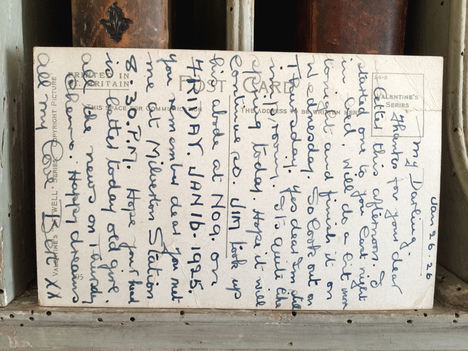 PRINTED IN
GT. BRITAIN
POST CARD
THIS SPACE FOR COMMUNICATION
THE ADDRESS TO BE WRITTEN HERE
VALENTINE'S
SERIES
COPYRIGHT PICTURE
Jan 26. 26
My Darling.
Thanks for your dear
letter this afternoon. I
started one to you last night
in bed. Will do a bit more
tonight and finish it on
Wednesday. So look out on
Thursday. Yes dear I'm
room. It's quite like
spring today. Hope it will
continue so. Jim took up
his abode at No 9. on
FRIDAY. JAN 16. 1925.
you remember dear you met
me at Milverton Station
8.30. P.M. Hope your head
is better today old girl.
All the news on Thursday
Cheerio. Happy dreams
All my love Bert XX